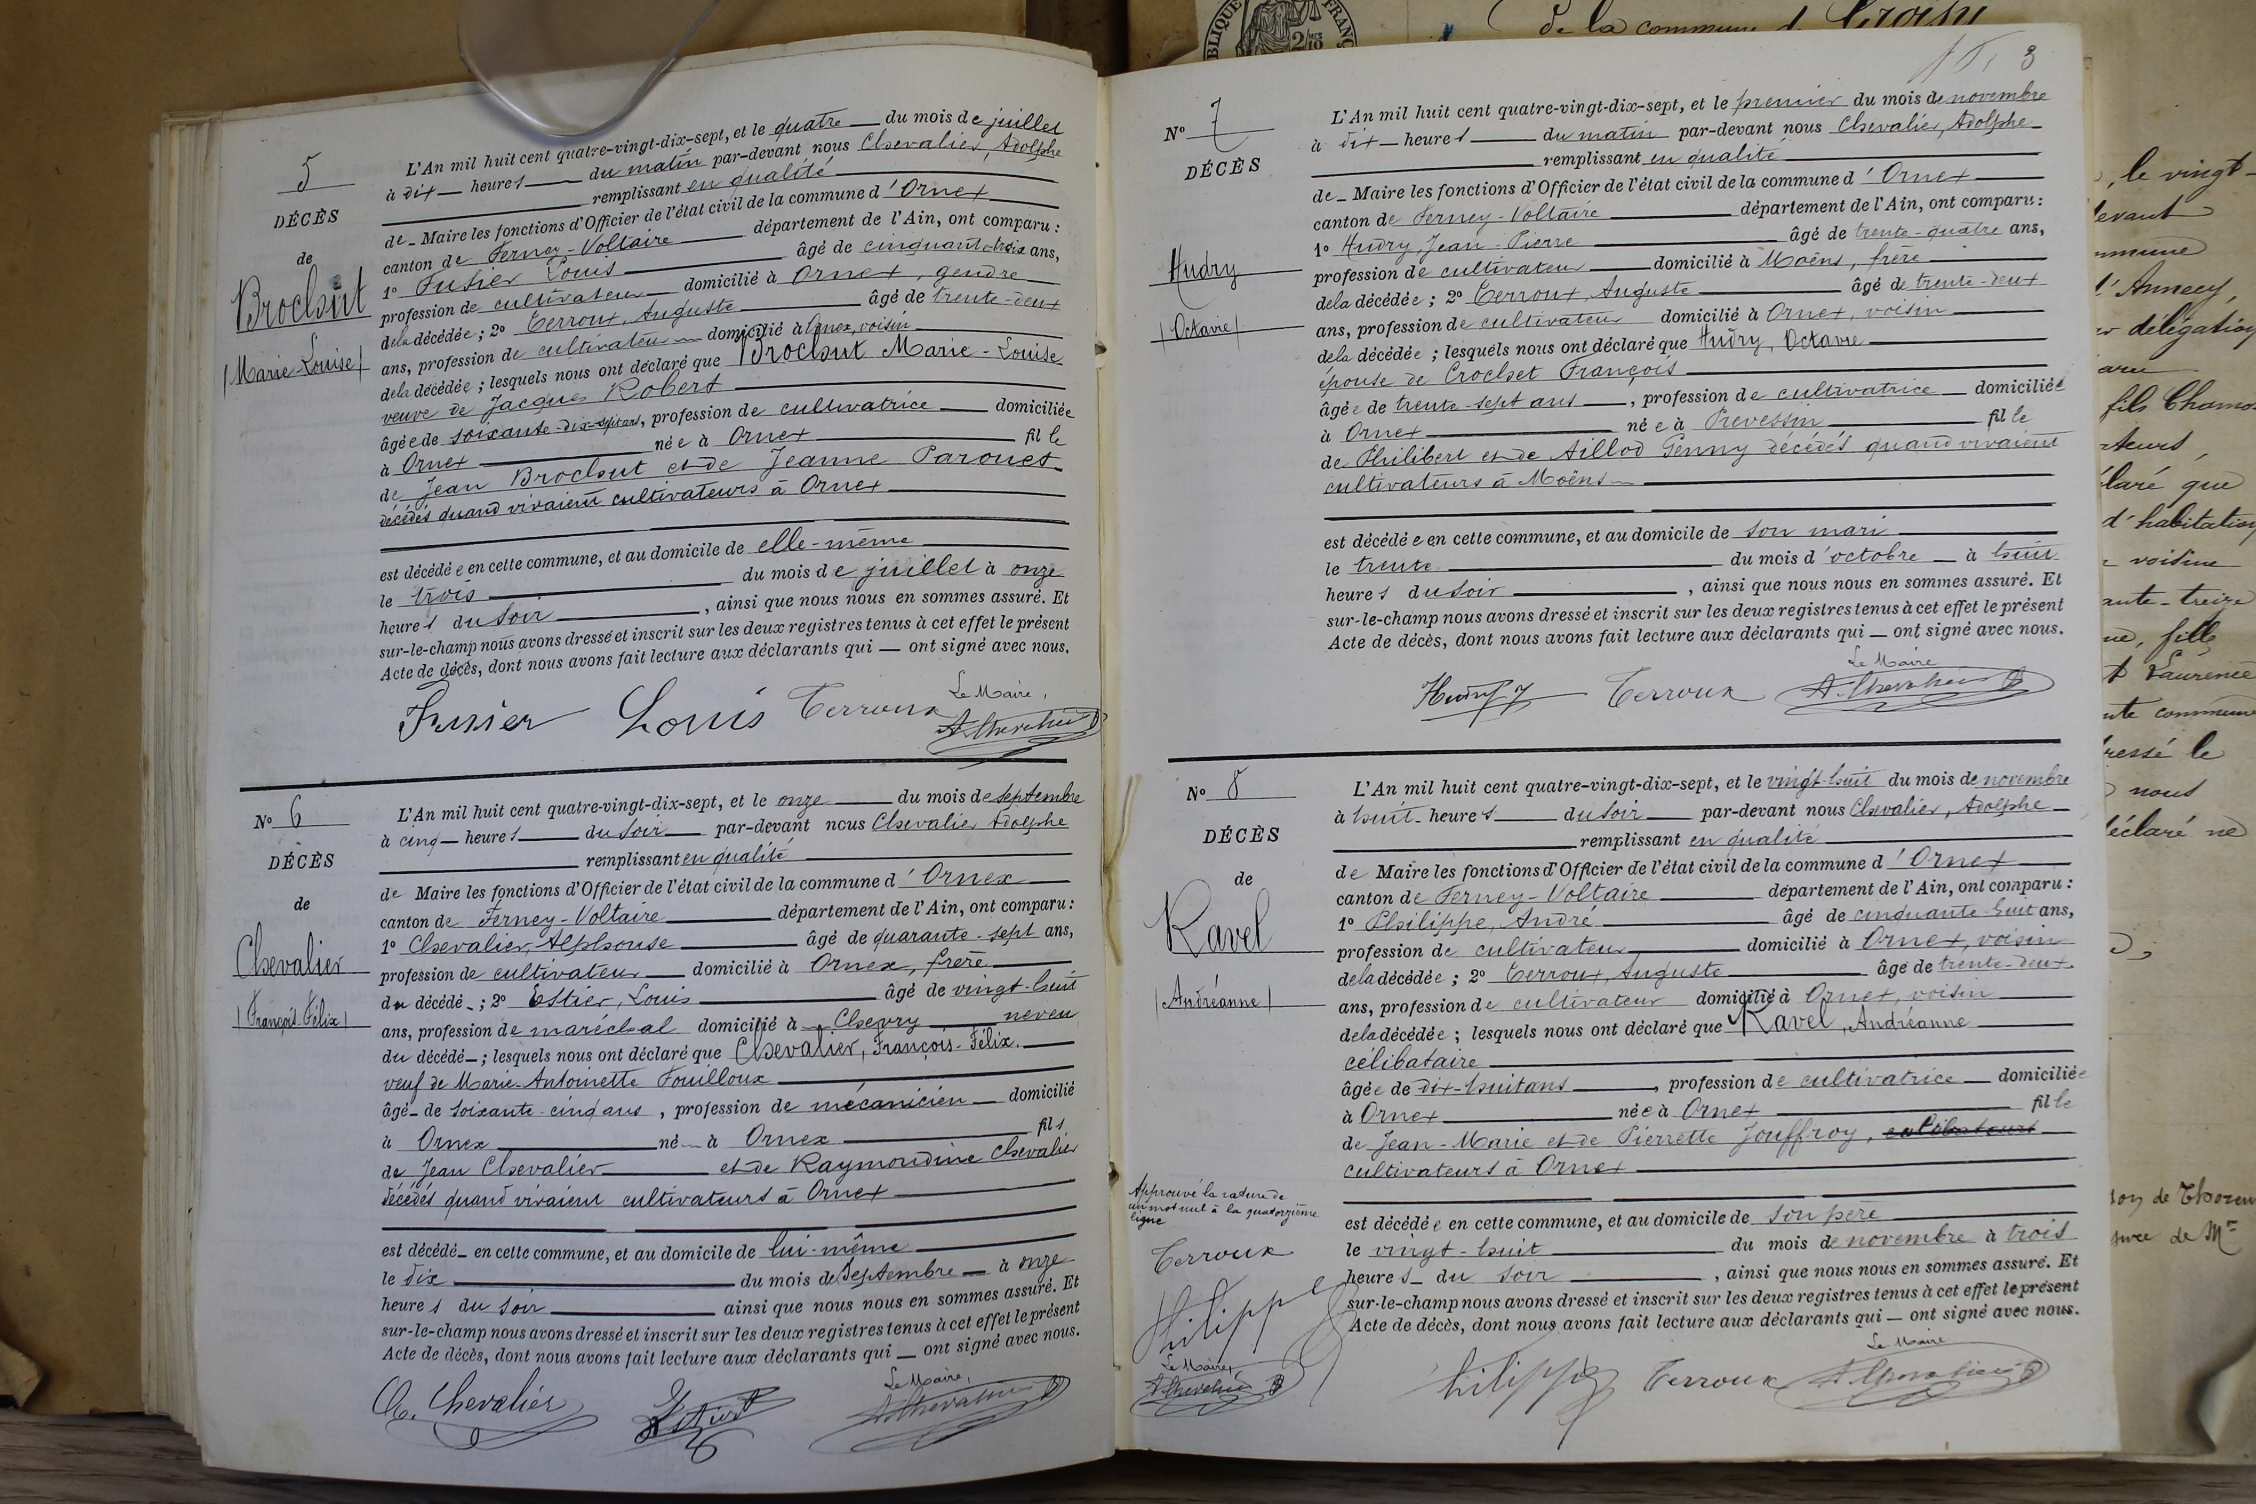 5
DÉCÈS
de
Brochut
(Marie-Louise)
L'An mil huit cent quatre-vingt-dix-sept, et le quatre du mois de juillet
à dix heures du matin par-devant nous Chevalier, Adolphe
remplissant en qualité
de Maire les fonctions d'Officier de l'état civil de la commune d'Ornex
canton de Ferney-Voltaire département de l'Ain, ont comparu :
1º Fusier Louis âgé de cinquante-trois ans,
profession de cultivateur domicilié à Ornex, gendre
de la décédée ; 2º Terroux, Auguste âgé de trente-deux
ans, profession de cultivateur domicilié à Ornex, voisin
de la décédée ; lesquels nous ont déclaré que Brochut Marie-Louise
veuve de Jacques Robert
âgée de soixante-dix-sept ans, profession de cultivatrice domiciliée
à Ornex née à Ornex fille
de Jean Brochut et de Jeanne Parouet
décédés quand vivaient cultivateurs à Ornex
est décédée en cette commune, et au domicile de elle-même
le trois du mois de juillet à onze
heures du soir, ainsi que nous nous en sommes assuré. Et
sur-le-champ nous avons dressé et inscrit sur les deux registres tenus à cet effet le présent
Acte de décès, dont nous avons fait lecture aux déclarants qui ont signé avec nous.
Le Maire,
Fusier Louis Terroux A. Chevalier
Nº 6
DÉCÈS
de
Chevalier
(François-Félix)
L'An mil huit cent quatre-vingt-dix-sept, et le onze du mois de septembre
à cinq heures du soir par-devant nous Chevalier Adolphe
remplissant en qualité
de Maire les fonctions d'Officier de l'état civil de la commune d'Ornex
canton de Ferney-Voltaire département de l'Ain, ont comparu :
1º Chevalier, Alphonse âgé de quarante-sept ans,
profession de cultivateur domicilié à Ornex, frère
du décédé ; 2º Estier, Louis âgé de vingt-huit
ans, profession de maréchal domicilié à Chevry neveu
du décédé ; lesquels nous ont déclaré que Chevalier, François-Félix.
veuf de Marie-Antoinette Fouilloux
âgé de soixante-cinq ans, profession de mécanicien domicilié
à Ornex né à Ornex fils
de Jean Chevalier et de Raymondine Chevalier
décédés quand vivaient cultivateurs à Ornex
est décédé en cette commune, et au domicile de lui-même
le dix du mois de Septembre à onze
heures du soir ainsi que nous nous en sommes assuré. Et
sur-le-champ nous avons dressé et inscrit sur les deux registres tenus à cet effet le présent
Acte de décès, dont nous avons fait lecture aux déclarants qui ont signé avec nous.
Le Maire,
A. Chevalier Estier A. Chevalier
3
Nº 7
DÉCÈS
Hudry
(Octavie)
L'An mil huit cent quatre-vingt-dix-sept, et le premier du mois de novembre
à dix heures du matin par-devant nous Chevalier, Adolphe
remplissant en qualité
de Maire les fonctions d'Officier de l'état civil de la commune d'Ornex
canton de Ferney-Voltaire département de l'Ain, ont comparu :
1º Hudry, Jean-Pierre âgé de trente-quatre ans,
profession de cultivateur domicilié à Moëns, frère
de la décédée ; 2º Terroux, Auguste âgé de trente-deux
ans, profession de cultivateur domicilié à Ornex, voisin
de la décédée ; lesquels nous ont déclaré que Hudry, Octavie
épouse de Crochet François
âgée de trente-sept ans, profession de cultivatrice domiciliée
à Ornex née à Prevessin fille
de Philibert et de Aillod Genny décédés quand vivaient
cultivateurs à Moëns
est décédée en cette commune, et au domicile de son mari
le trente du mois d'octobre à huit
heures du soir, ainsi que nous nous en sommes assuré. Et
sur-le-champ nous avons dressé et inscrit sur les deux registres tenus à cet effet le présent
Acte de décès, dont nous avons fait lecture aux déclarants qui ont signé avec nous.
Le Maire
Hudry Terroux A. Chevalier
Nº 8
DÉCÈS
de
Ravel
(Andréanne)
L'An mil huit cent quatre-vingt-dix-sept, et le vingt-huit du mois de novembre
à huit heures du soir par-devant nous Chevalier, Adolphe
remplissant en qualité
de Maire les fonctions d'Officier de l'état civil de la commune d'Ornex
canton de Ferney-Voltaire département de l'Ain, ont comparu :
1º Philippe, André âgé de cinquante-huit ans,
profession de cultivateur domicilié à Ornex, voisin
de la décédée ; 2º Terroux, Auguste âgé de trente-deux
ans, profession de cultivateur domicilié à Ornex, voisin
de la décédée ; lesquels nous ont déclaré que Ravel, Andréanne
célibataire
âgée de dix-huit ans, profession de cultivatrice domiciliée
à Ornex née à Ornex fille
de Jean-Marie et de Pierrette Jouffroy,
cultivateurs à Ornex
est décédée en cette commune, et au domicile de son père
le vingt-huit du mois de novembre à trois
heures du soir, ainsi que nous nous en sommes assuré. Et
sur-le-champ nous avons dressé et inscrit sur les deux registres tenus à cet effet le présent
Acte de décès, dont nous avons fait lecture aux déclarants qui ont signé avec nous.
Le Maire
Philippe Terroux A. Chevalier
Approuvé la rature de
un mot nul à la quatorzième
ligne
Terroux
Philippe
Le Maire,
A. Chevalier
de la commune d
2/10
le vingt-
evant
mmune
d'Annecy,
délégation
fils
claré que
d'habitation
voisine
ante-treize
fille
Laurence
commune
ressé le
nous
déclaré ne
de Mr